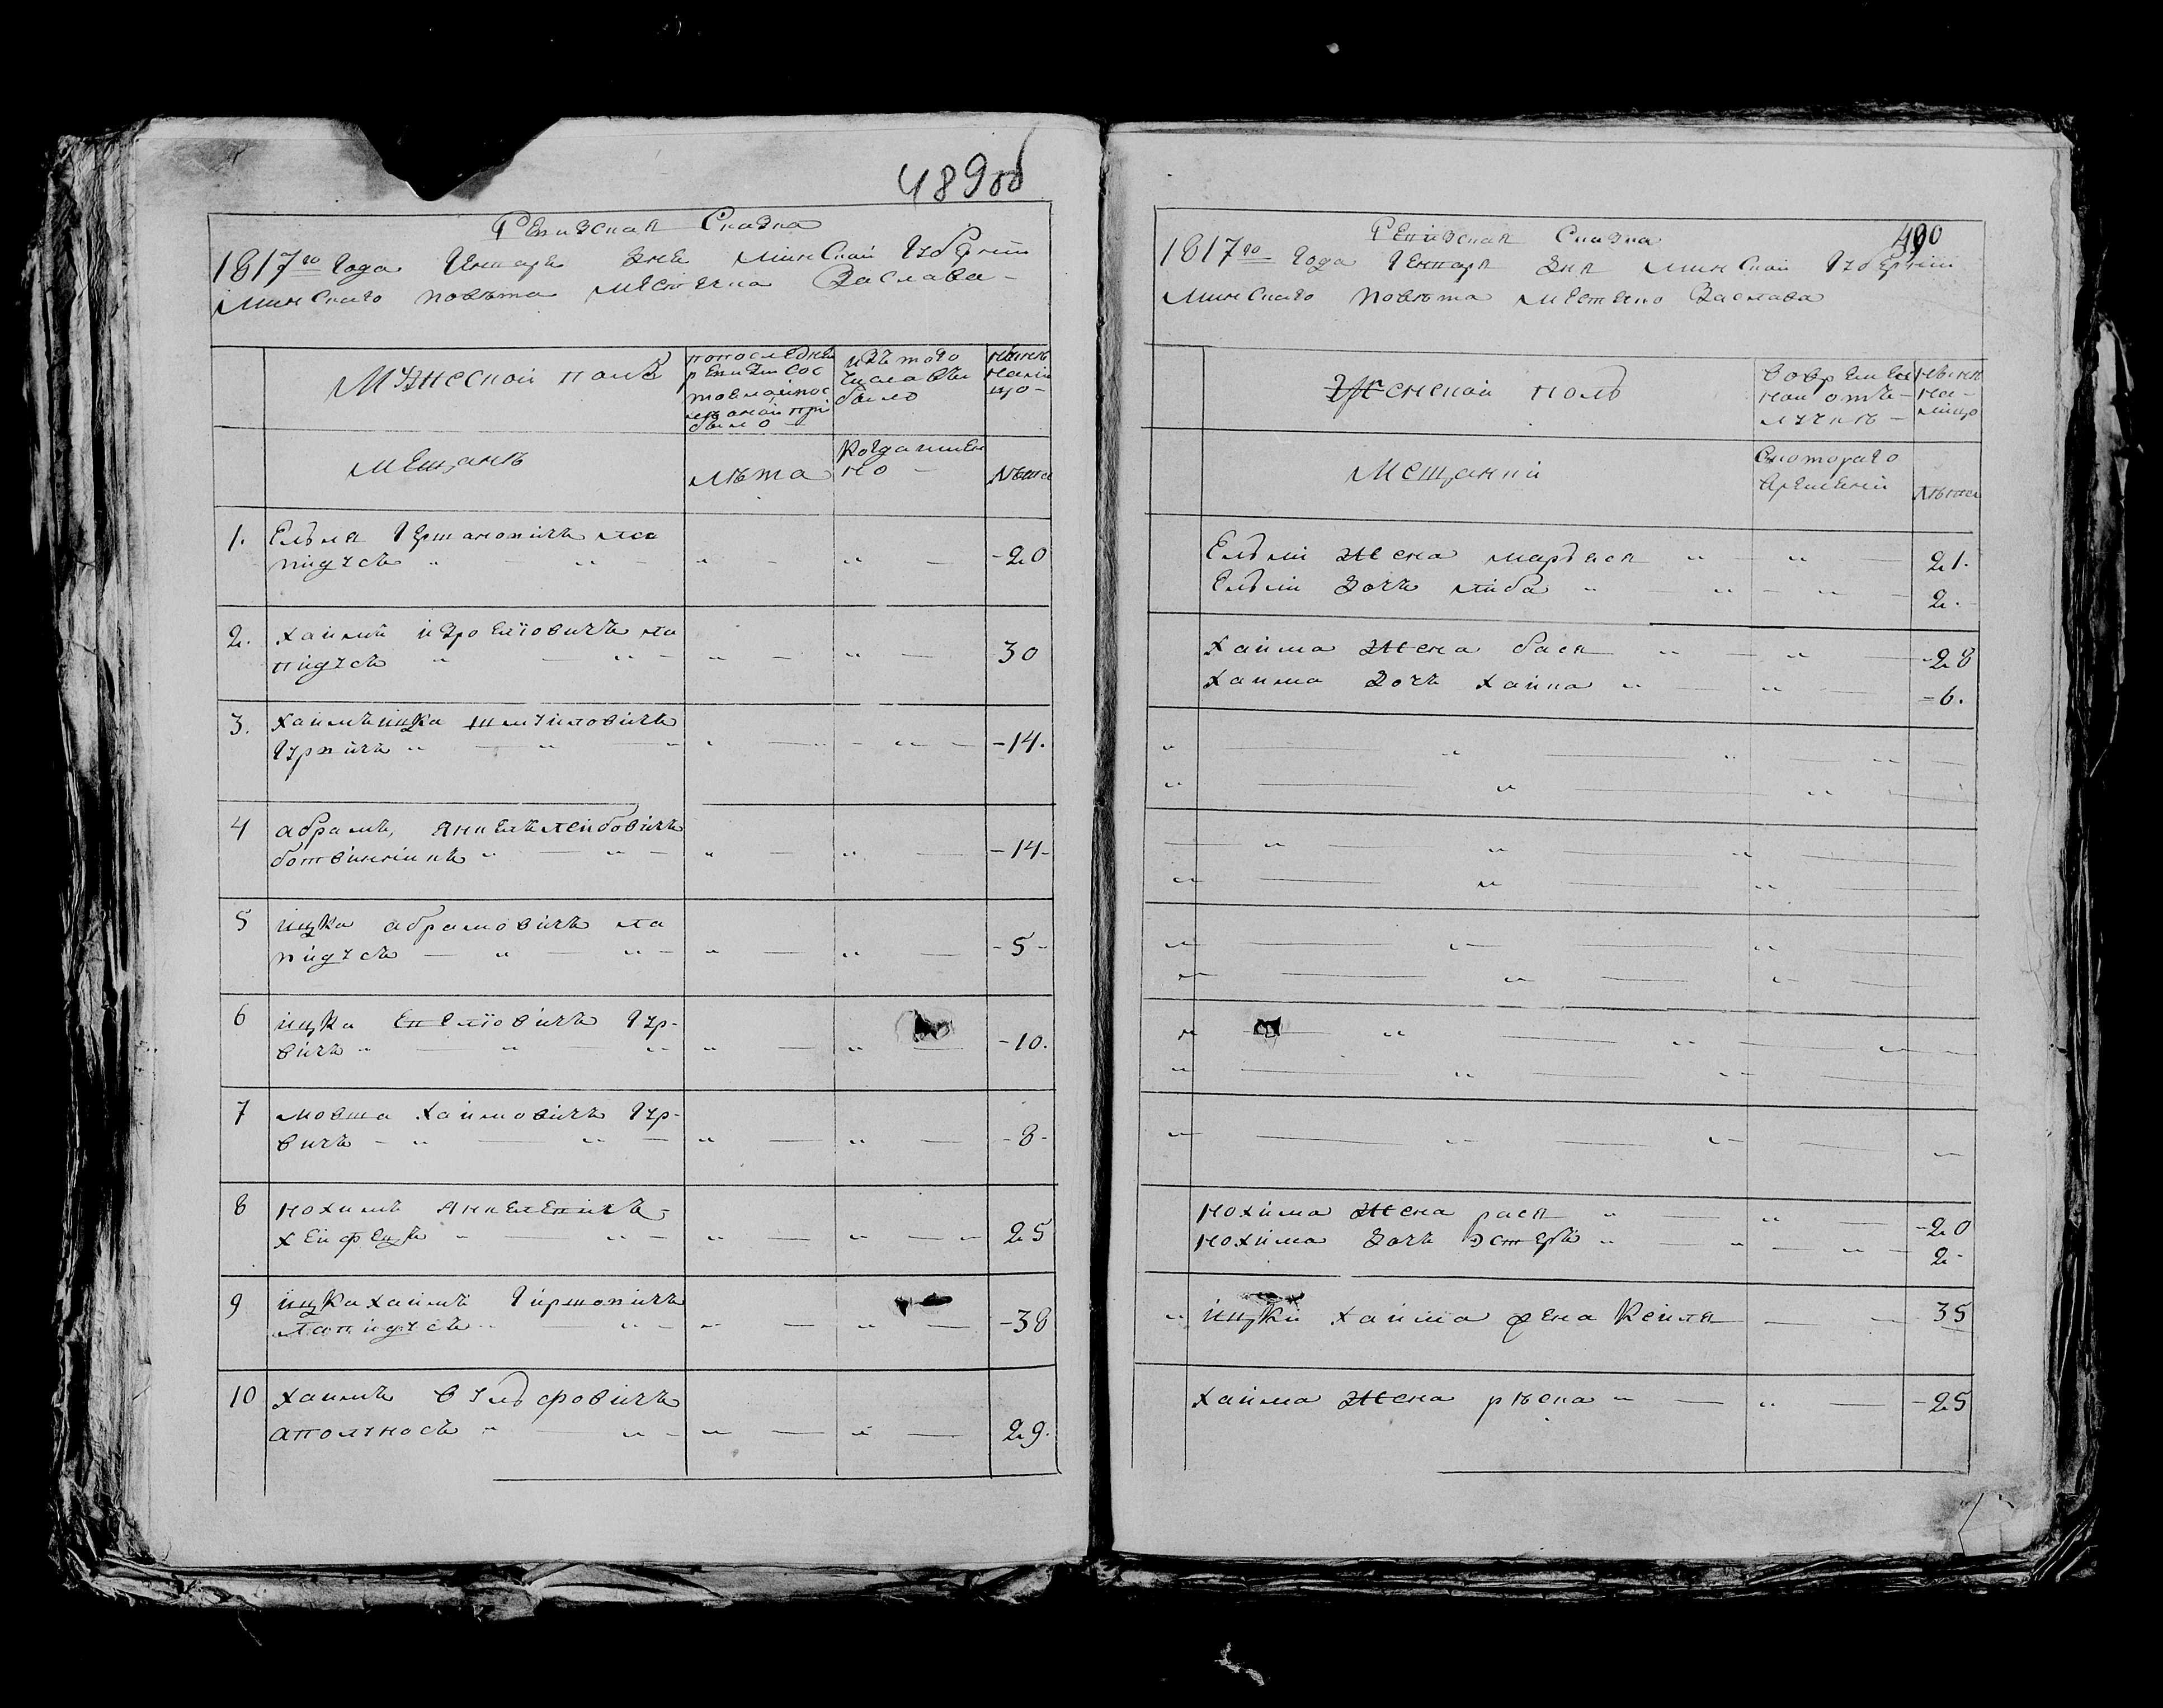 489об
Ревизская Сказка
1817го Года Генваря дня минской Губернии
минскаго повѣта местечка Заслава
Мужеской полъ
по последней
ревизии сос
было
изъ того
числа вы
было
ныне
на ли
цо
мещанъ
лѣта
когда имен
но
лѣта
1. Ельля Гершановичъ ла
пидусъ 20
2. хаимъ изроелiовичъ ла
пидусъ 30
3. хаимъ ицка шмуиловичъ
Гурвичъ 14
4 абрамъ, янкель лейбовичъ
ботвинникъ 14
5 ицка абрамовичъ ла
пидусъ 5
6 ицка Евелiовичъ Гур-
вичъ 10
7 мовша хаимовичъ Гур-
вичъ 8
8 нохимъ янкелевичъ
хейфецъ 25
9 ицка хаимъ Гиршовичъ
лапидусъ 38
10 хаимъ вульфовичъ
аполуносъ 29
490
Ревизская Сказка
1817го Года Генваря дня минской Губернии
минскаго повѣта местечко Заслава
Женской полъ
во времен
ной отлу-
чкѣ
ныне
на-
лицо
Мещанки
Скотораго
времени
лѣта
Ельли жена марьяся 21
Ельли дочь либа 2
хаима жена бася 28
хаима дочь хайка 6
нохима жена рася 20
нохима дочь эстеръ 2
ицки хаима жена кейля 35
хаима жена рѣска 25